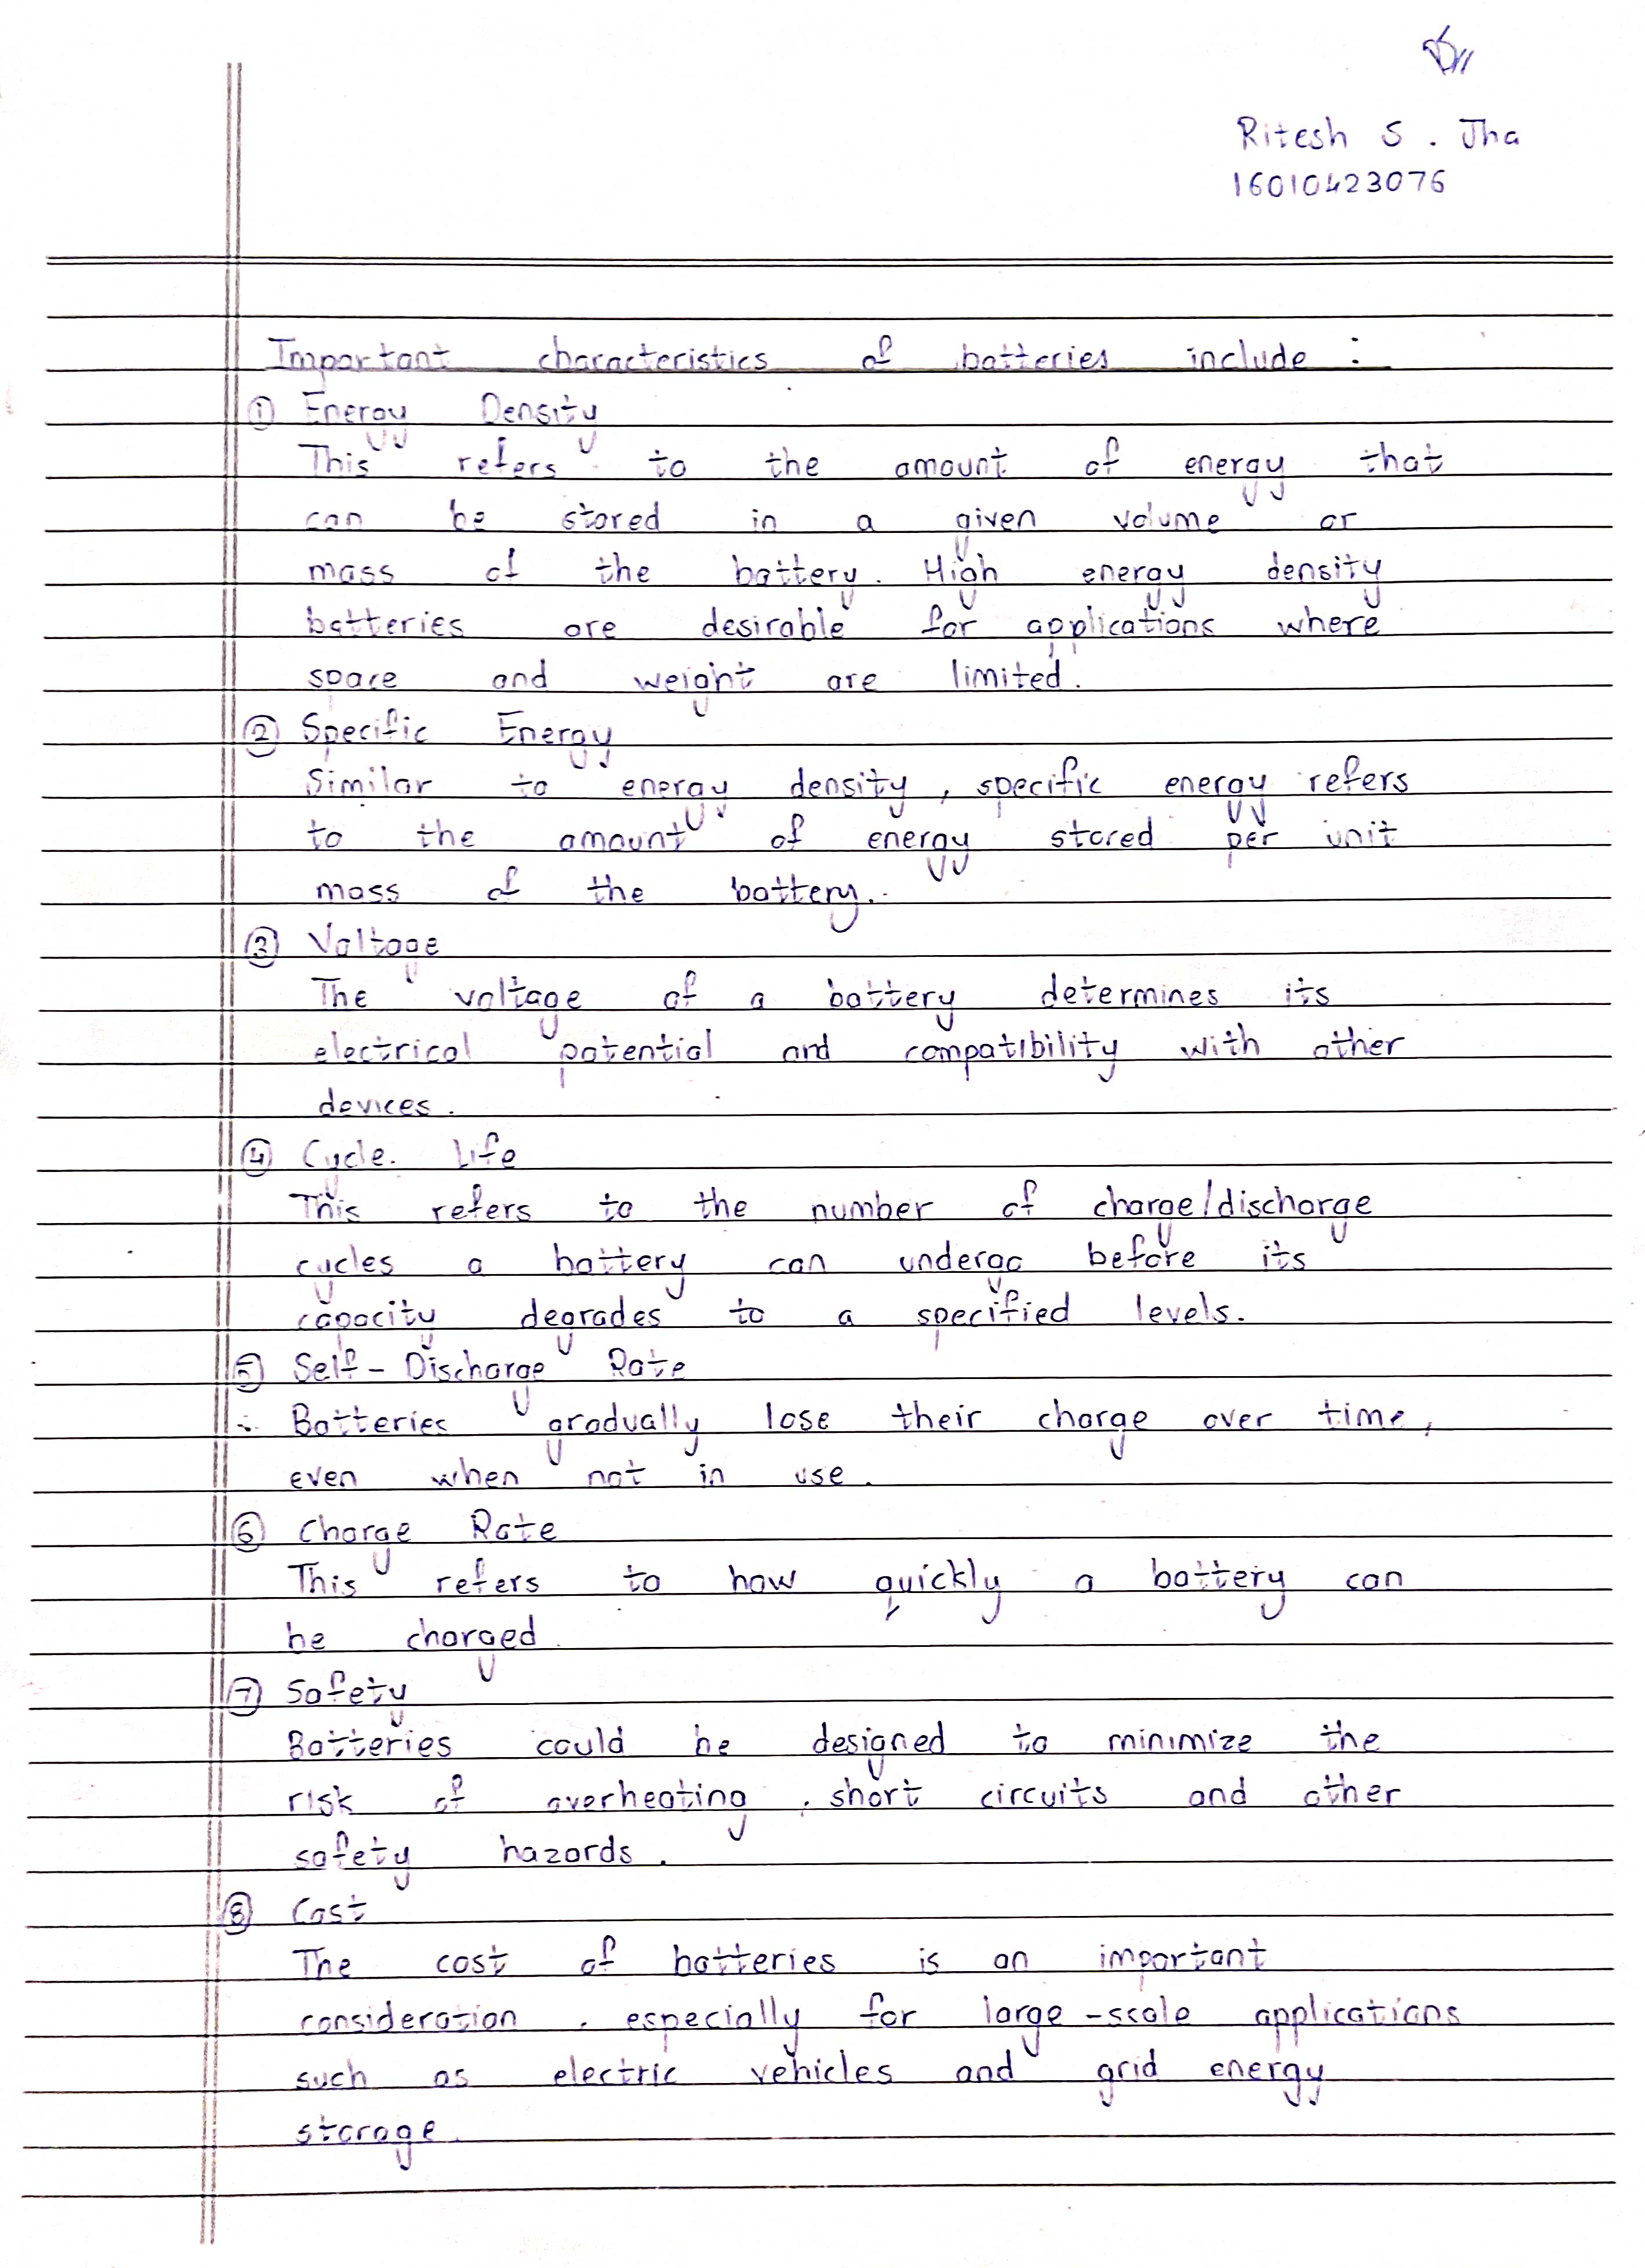 Ritesh S. Jha
16010423076
Important characteristics of batteries include :
① Energy Density
This refers to the amount of energy that
can be stored in a given volume or
mass of the battery. High energy density
batteries are desirable for applications where
space and weight are limited.
② Specific Energy
Similar to energy density, specific energy refers
to the amount of energy stored per unit
mass of the battery.
③ Voltage
The voltage of a battery determines its
electrical potential and compatibility with other
devices.
④ Cycle Life
This refers to the number of charge/discharge
cycles a battery can undergo before its
capacity degrades to a specified levels.
⑤ Self-Discharge Rate
Batteries gradually lose their charge over time,
even when not in use.
⑥ Charge Rate
This refers to how quickly a battery can
be charged.
⑦ Safety
Batteries could be designed to minimize the
risk of overheating, short circuits and other
safety hazards.
⑧ Cost
The cost of batteries is an important
consideration, especially for large-scale applications
such as electric vehicles and grid energy
storage.